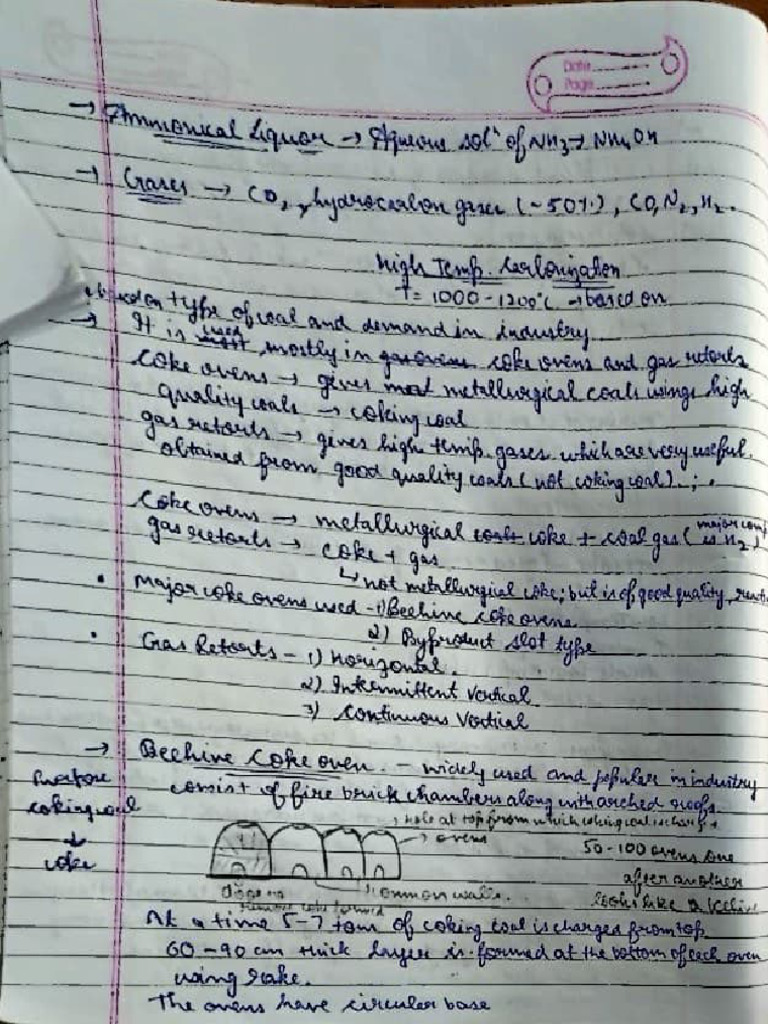 Date
Page
→ Ammonical Liquor → Aqueous solⁿ of NH3 → NH4OH
→ Gases → CO2, hydrocarbon gases (~50%), CO, N2, H2.
High Temp. Carbonization
T = 1000-1200°C → based on
type of coal and demand in industry
→ It is used mostly in coke ovens and gas retorts
Coke ovens → gives metallurgical coals using high
quality coals → coking coal
gas retorts → gives high temp. gases which are very useful.
obtained from good quality coals (not coking coal).
Coke ovens → metallurgical coke + coal gas (major comp is H2)
gas retorts → coke + gas
↳ not metallurgical coke; but is of good quality,
• Major coke ovens used - 1) Beehive coke ovens
2) Byproduct slot type
• Gas Retorts - 1) Horizontal.
2) Intermittent Vertical
3) Continuous Vertical
→ Beehive Coke oven. - widely used and popular in industry
consist of fire brick chambers along with arched roofs
Purpose
coking coal
↓
coke
hole at top from which coking coal is charged
→ ovens
50-100 ovens one
after another
looks like a
Common walls.
remove coke formed
At a time 5-7 tons of coking coal is charged from top
60-90 cm thick layer is formed at the bottom of each oven
using rake.
The ovens have circular base